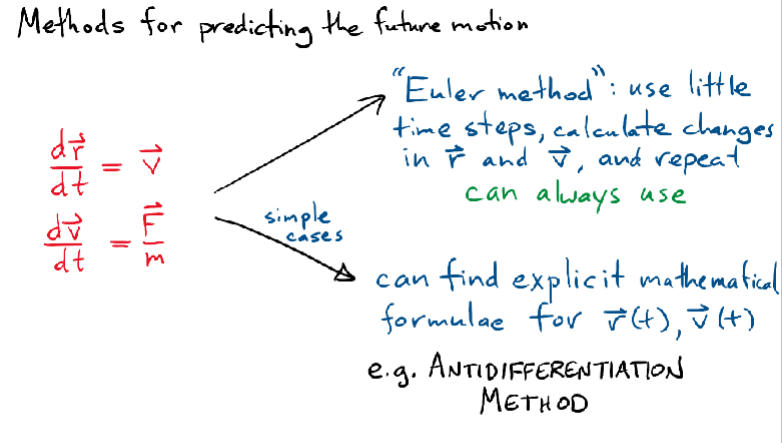 Methods for predicting the future motion
"Euler method": use little
time steps, calculate changes
in r⃗ and v⃗, and repeat
can always use
dr⃗/dt = v⃗
dv⃗/dt = F⃗/m
simple
cases
can find explicit mathematical
formulae for r⃗(t), v⃗(t)
e.g. ANTIDIFFERENTIATION
METHOD